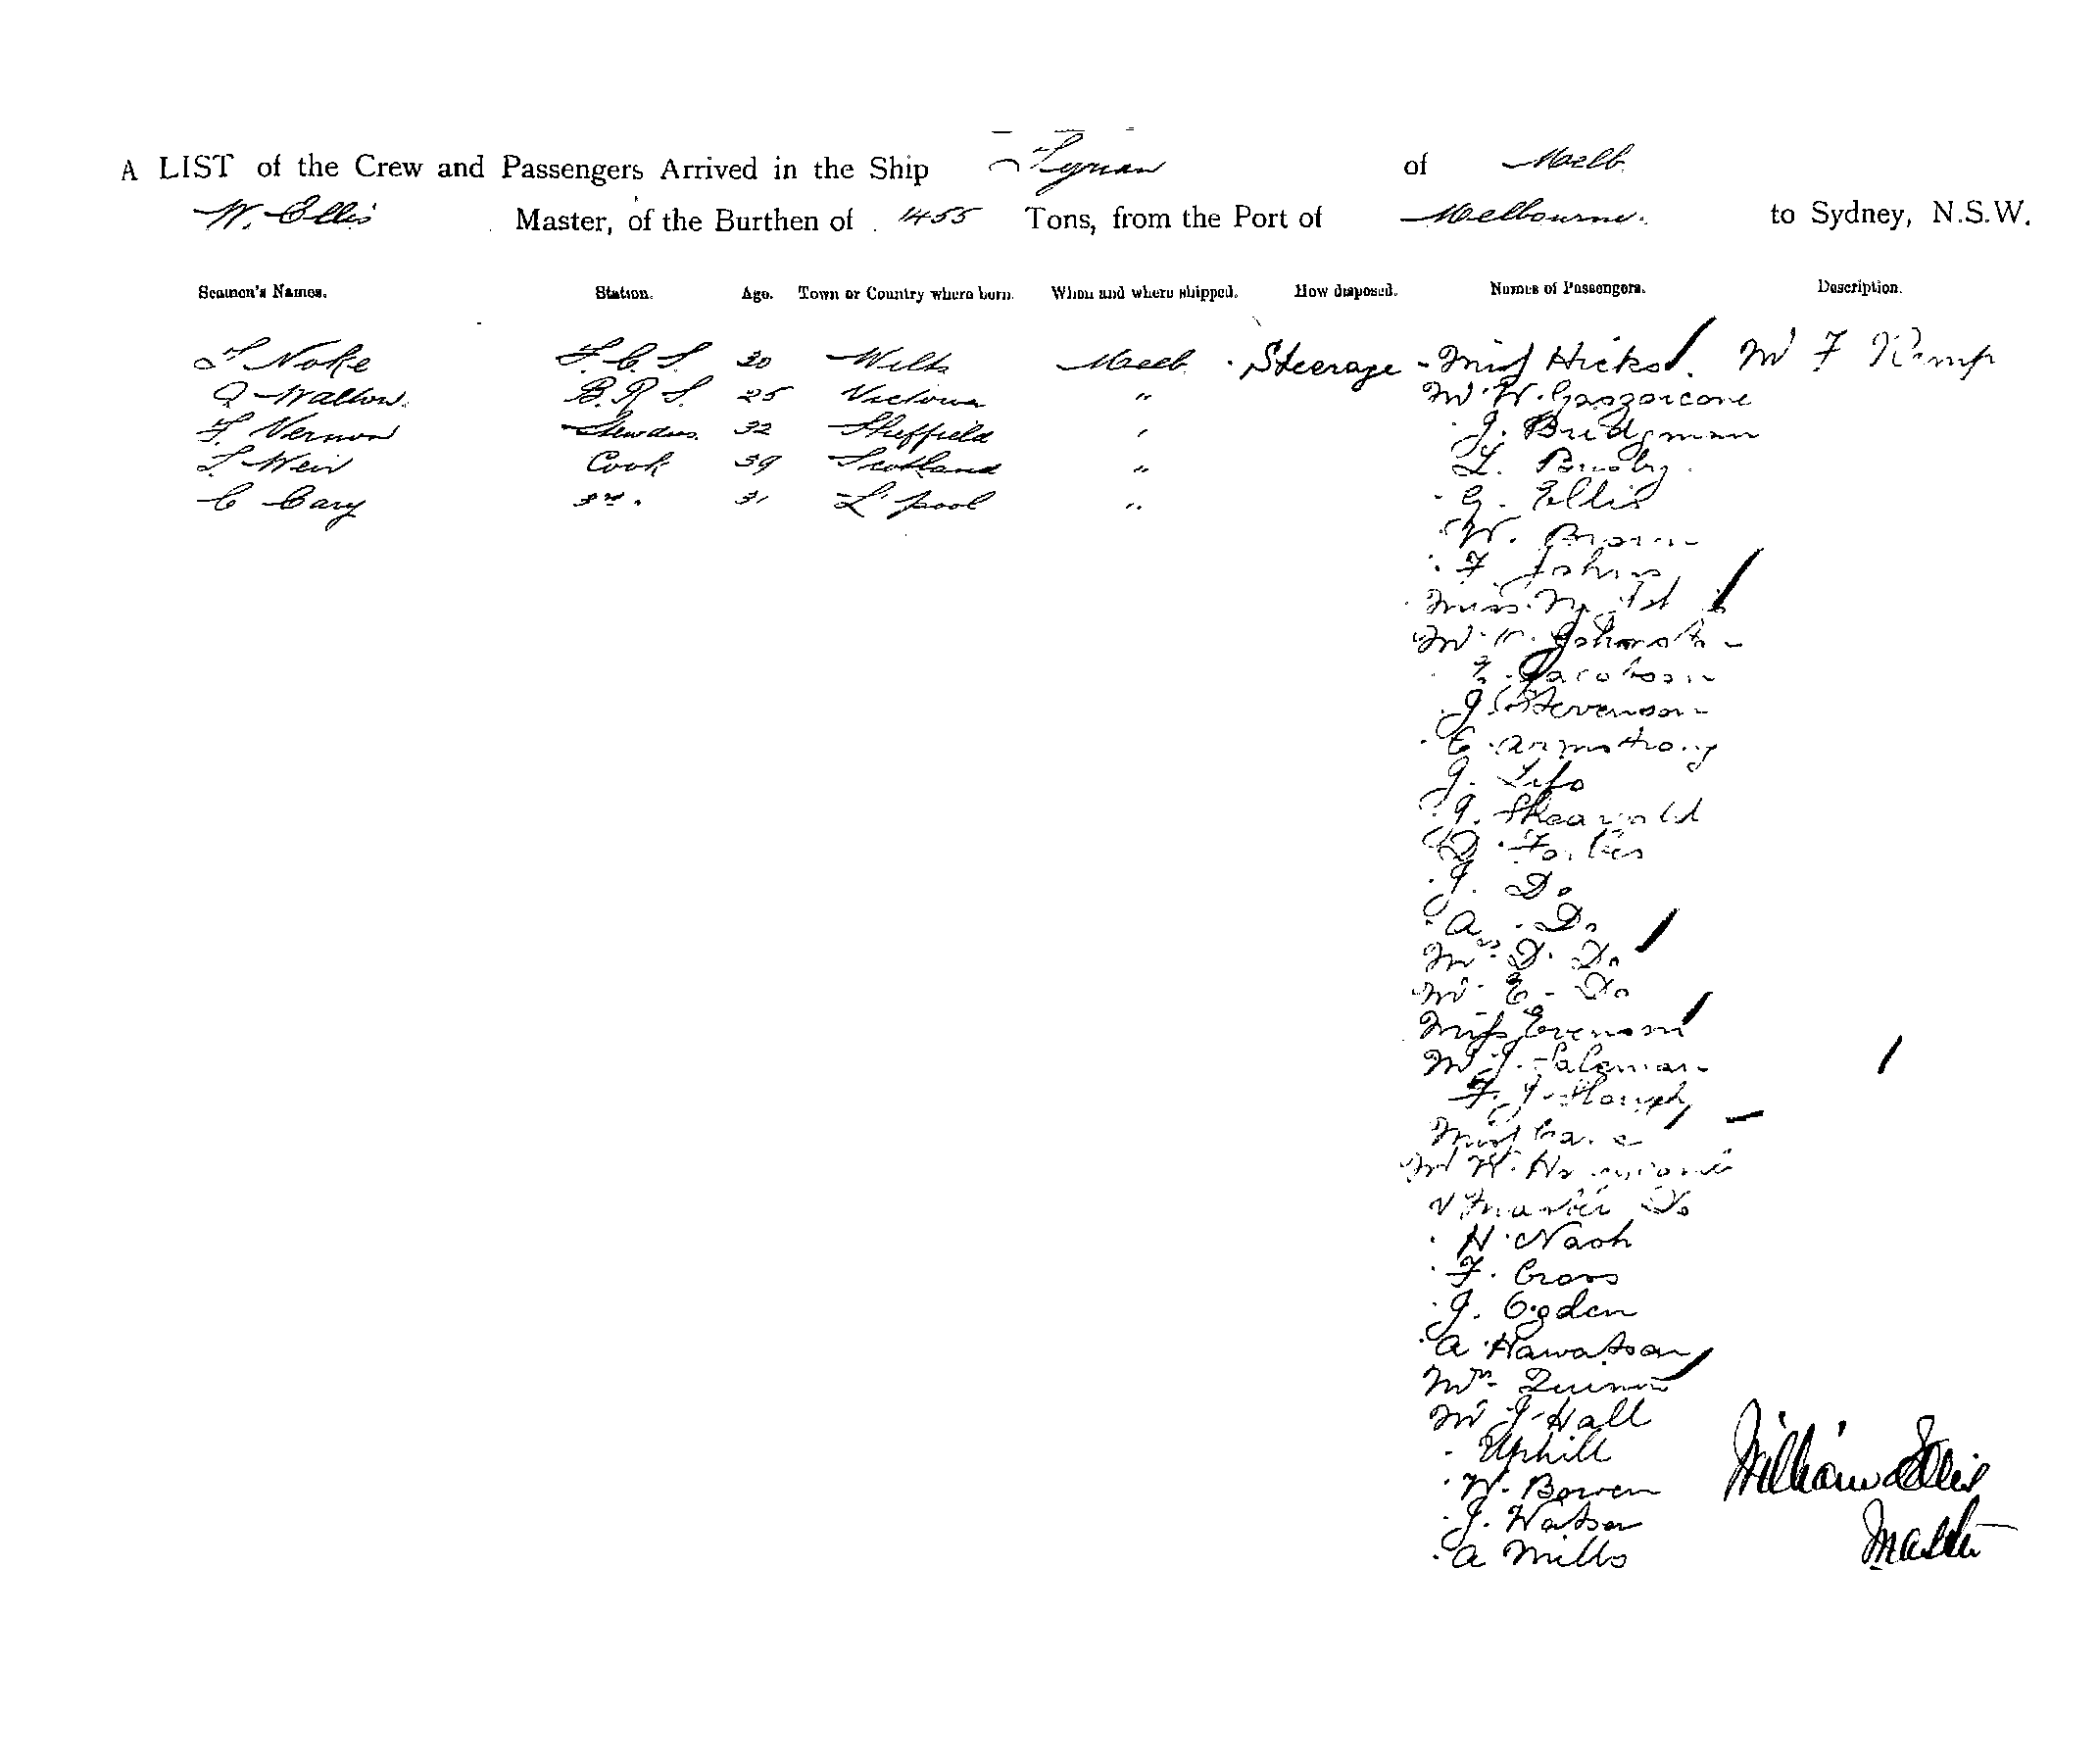 A LIST of the Crew and Passengers Arrived in the Ship Tyrian of Melb.
W. Ellis Master, of the Burthen of 1455 Tons, from the Port of Melbourne. to Sydney, N.S.W.
Seamen's Names. Station. Age. Town or Country where born. When and where shipped. How disposed. Names of Passengers. Description.
Noke F.C.S. 30 Wilts Melb. Steerage - Miss Hicks. Mr F Kemp
Walton. B.R.S. 25 Victoria " Mr W.
F. Vernon 32 Sheffield " J. Bridgman
Weir Cook 39 Scotland " L.
C Cary 3rd. 31 L'pool " G. Ellis
W. Brown
F Johns
Miss
Mr
Jacobson
J. Stevenson
E. Armstrong
J.
J.
D. Forbes
J. Do
A. Do
Mrs D. Do
Mr E. Do
Miss
Mr J. Saleman
F. J.
Miss
Mr H.
" Master Do
H. Nash
F. Cross
J. Ogden
A Hawatson
Mrs
Mr J. Hall
Uphill
W. Bowen William Ellis
J. Watson Master
A Mills